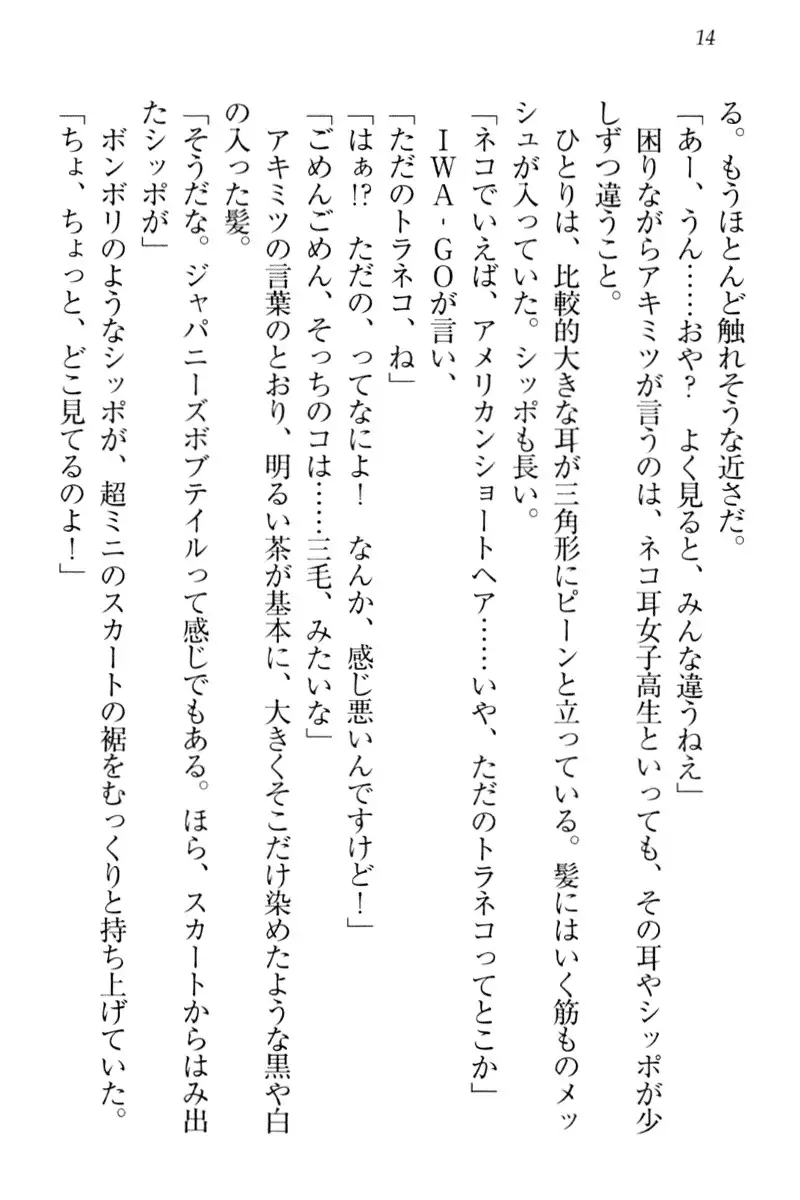 14
る。もうほとんど触れそうな近さだ。
「あー、うん……おや？　よく見ると、みんな違うねえ」
　困りながらアキミツが言うのは、ネコ耳女子高生といっても、その耳やシッポが少
しずつ違うこと。
　ひとりは、比較的大きな耳が三角形にピーンと立っている。髪にはいく筋ものメッ
シュが入っていた。シッポも長い。
「ネコでいえば、アメリカンショートヘア……いや、ただのトラネコってとこか」
　ＩＷＡ‐ＧＯが言い、
「ただのトラネコ、ね」
「はぁ!?　ただの、ってなによ！　なんか、感じ悪いんですけど！」
「ごめんごめん、そっちのコは……三毛、みたいな」
　アキミツの言葉のとおり、明るい茶が基本に、大きくそこだけ染めたような黒や白
の入った髪。
「そうだな。ジャパニーズボブテイルって感じでもある。ほら、スカートからはみ出
たシッポが」
　ボンボリのようなシッポが、超ミニのスカートの裾をむっくりと持ち上げていた。
「ちょ、ちょっと、どこ見てるのよ！」